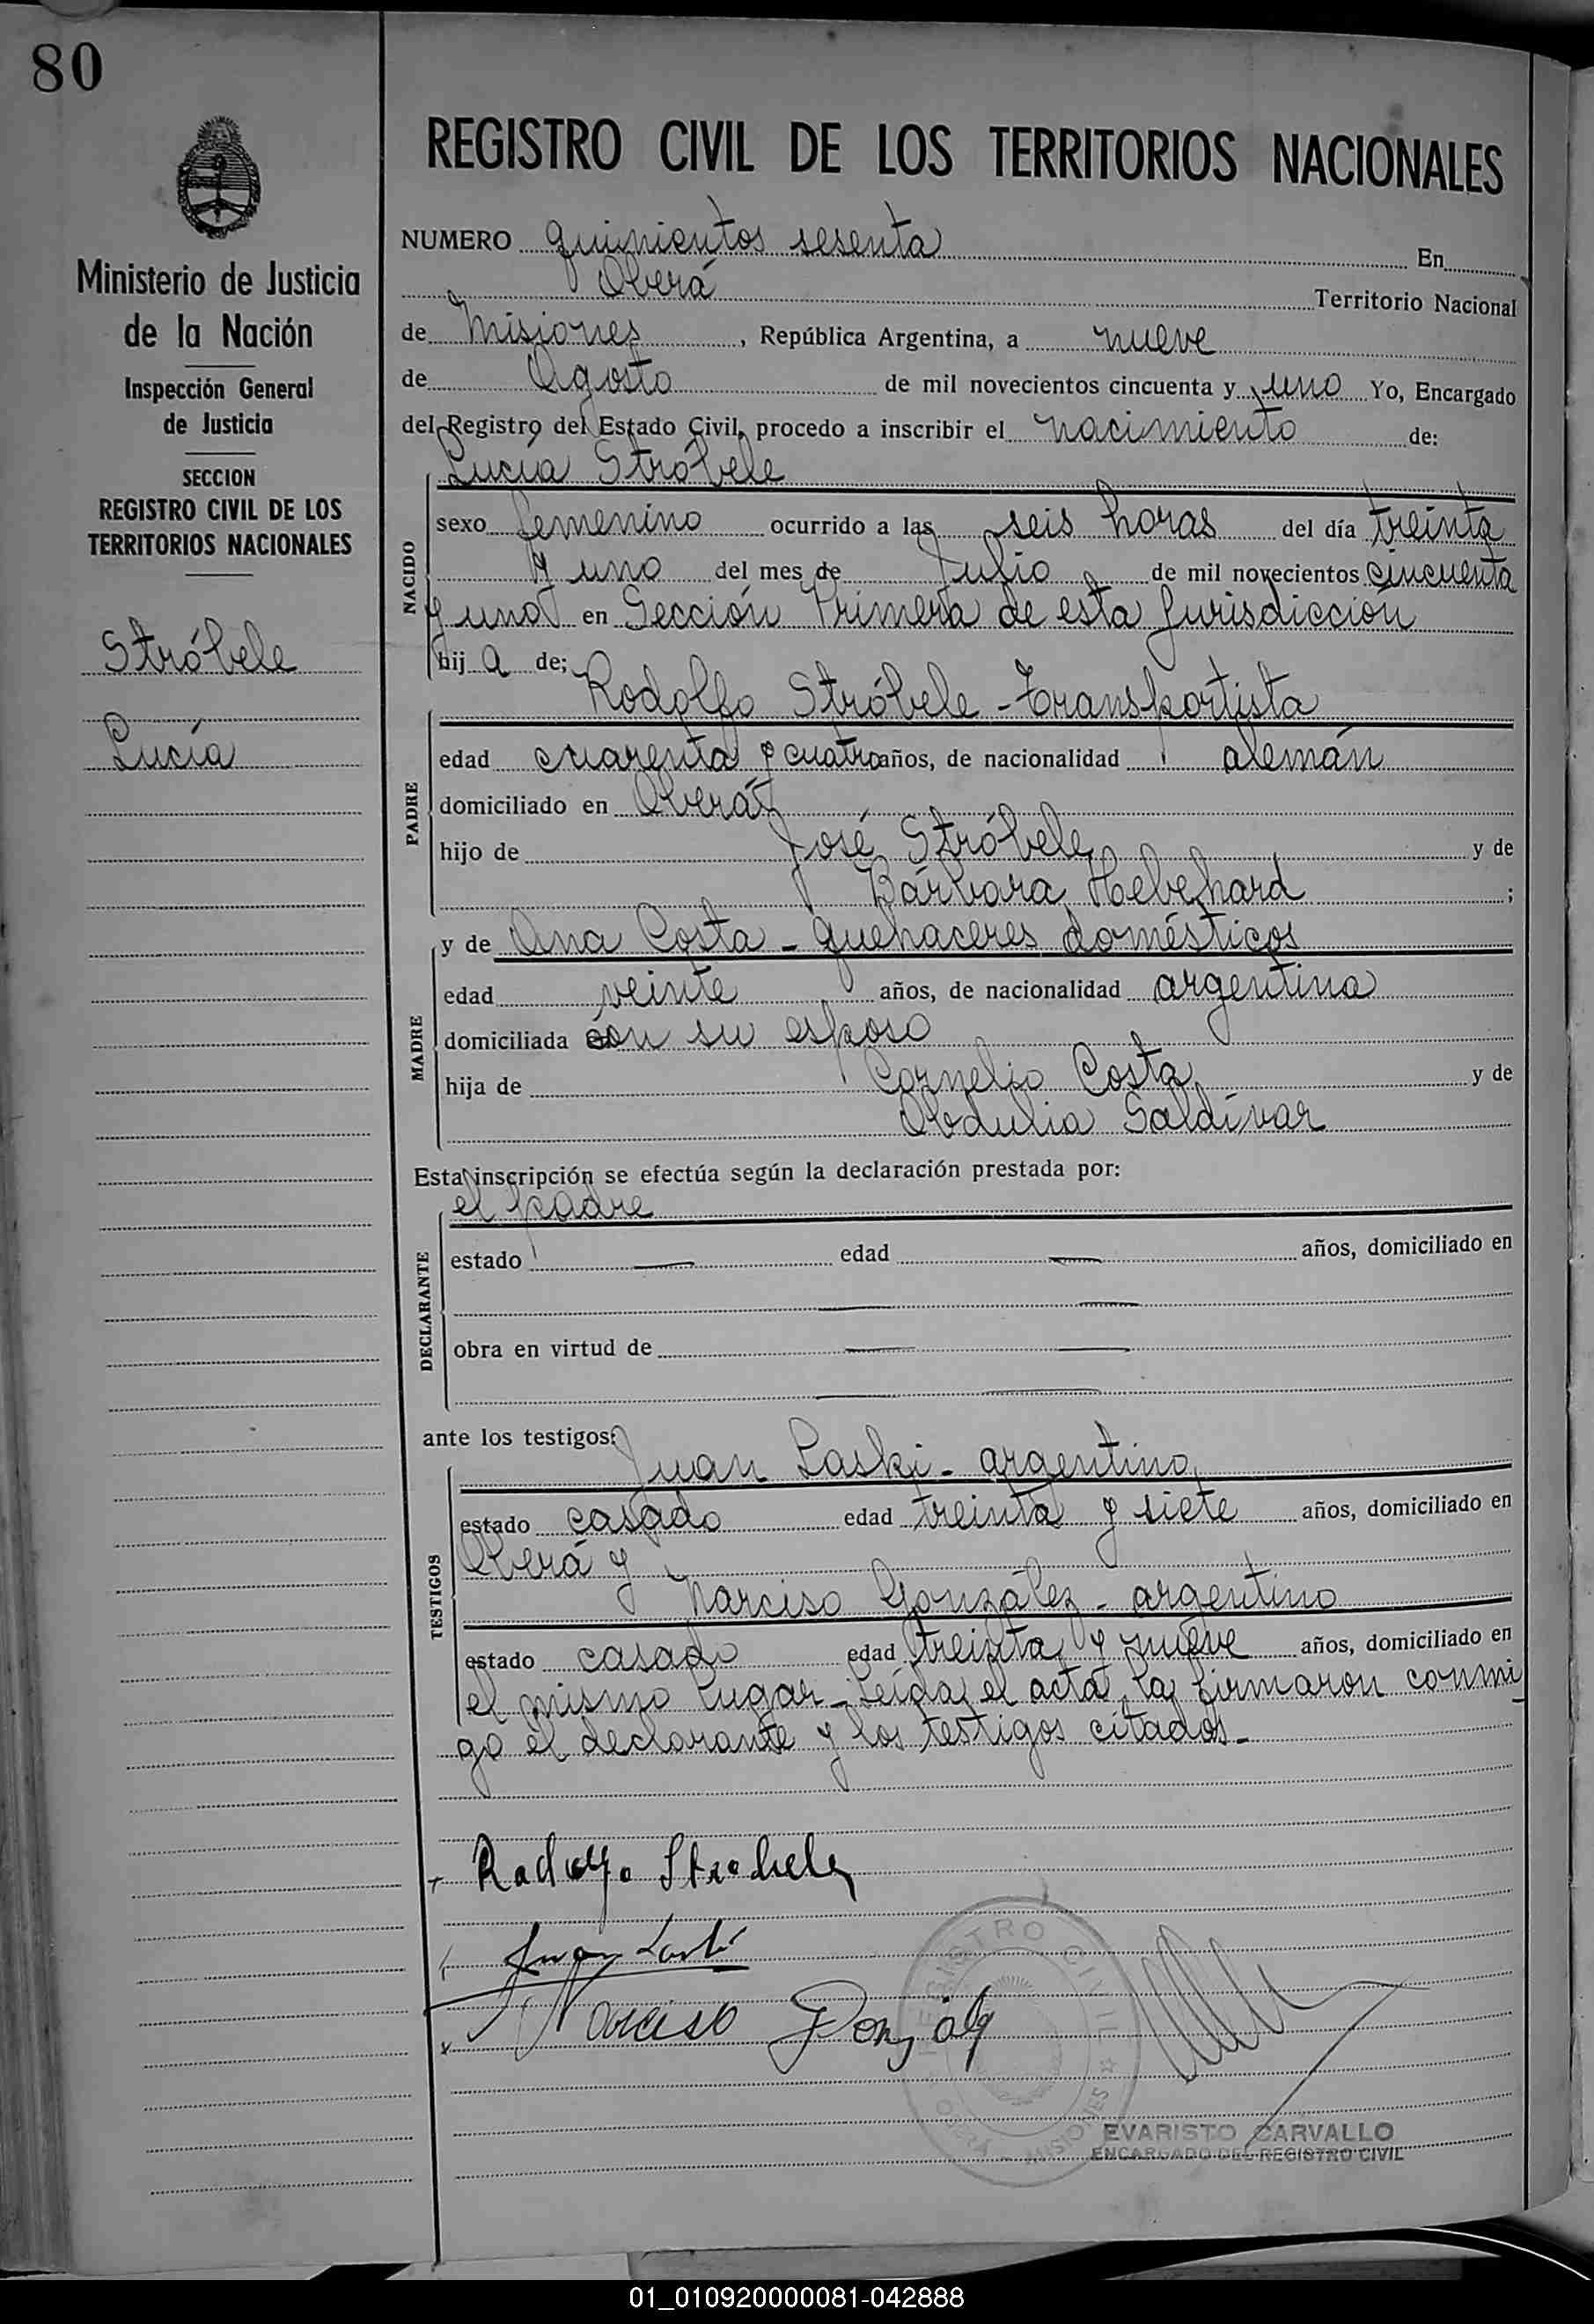 80
Ministerio de Justicia
de la Nación
Inspección General
de Justicia
SECCION
REGISTRO CIVIL DE LOS
TERRITORIOS NACIONALES
Stróbele
Lucía
REGISTRO CIVIL DE LOS TERRITORIOS NACIONALES
NUMERO quinientos sesenta En
Oberá Territorio Nacional
de Misiones, República Argentina, a nueve
de Agosto de mil novecientos cincuenta y uno Yo, Encargado
del Registro del Estado Civil, procedo a inscribir el nacimiento de:
Lucía Stróbele
NACIDO
sexo femenino ocurrido a las seis horas del día treinta
y uno del mes de Julio de mil novecientos cincuenta
y uno en Sección Primera de esta Jurisdicción
hij a de;
Rodolfo Stróbele - Transportista
PADRE
edad cuarenta y cuatro años, de nacionalidad alemán
domiciliado en Oberá
hijo de José Stróbele y de
Bárbara Hebehard ;
y de Ana Costa - quehaceres domésticos
MADRE
edad veinte años, de nacionalidad argentina
domiciliada con su esposo
hija de Cornelio Costa y de
Obdulia Saldívar
Esta inscripción se efectúa según la declaración prestada por:
el padre
DECLARANTE
estado — edad — años, domiciliado en
— —
obra en virtud de — —
— —
ante los testigos:
Juan Laski - argentino
TESTIGOS
estado casado edad treinta y siete años, domiciliado en
Oberá y
Narciso González - argentino
estado casado edad treinta y nueve años, domiciliado en
el mismo lugar - Leída el acta, la firmaron conmi
go el declarante y los testigos citados.-
Rodolfo Strobele
Juan Laski
Narciso González
REGISTRO CIVIL
OBERA - MISIONES
EVARISTO CARVALLO
ENCARGADO DEL REGISTRO CIVIL
01_010920000081-042888